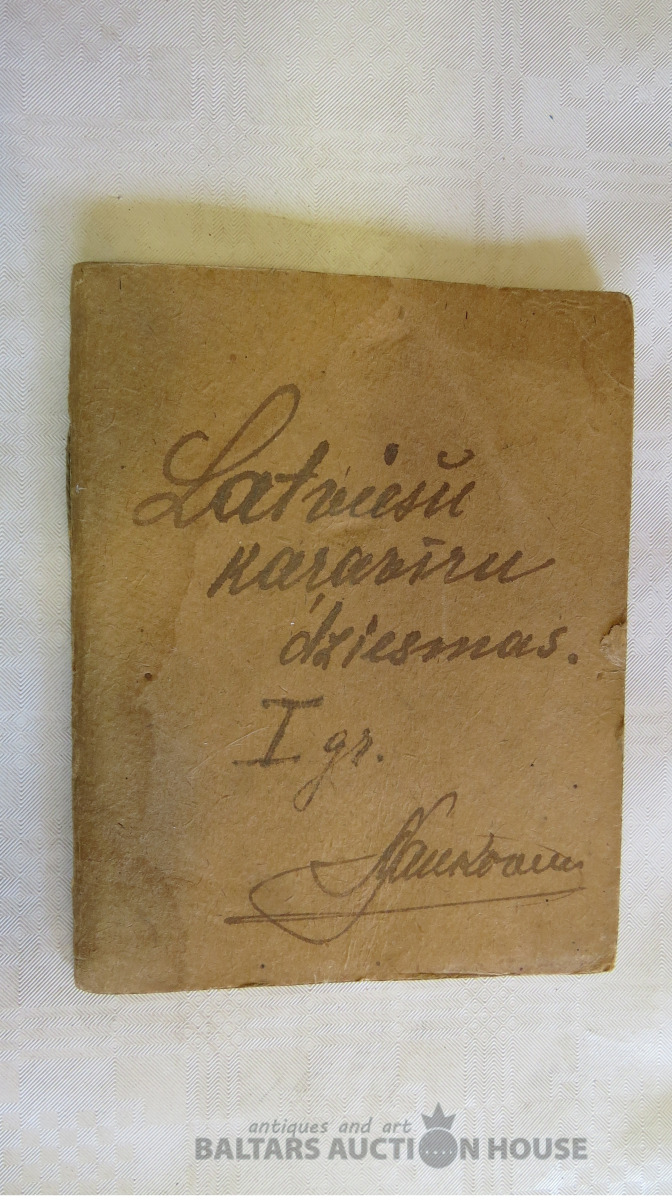 Latviešu
karavīru
dziesmas.
I gr.
antiques and art
BALTARS AUCTION HOUSE